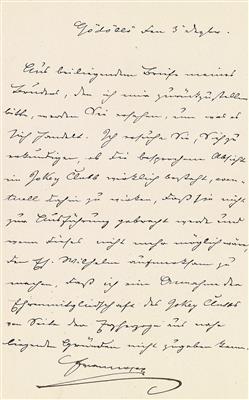 Gödöllő den 3 Dezbr.
Aus beiliegendem Briefe meines
Bruders, den ich mir zurückzustellen
bitte, werden Sie ersehen, um was es
sich handelt. Ich ersuche Sie, sich zu
erkundigen, ob die besprochene Absicht
im Jokey Clubb wirklich besteht, even-
tuell dahin zu wirken, daß sie nicht
zur Ausführung gebracht werde und
wenn dieses nicht mehr möglich wäre,
den Eh. Wilhelm aufmerksam zu
machen, daß ich eine Annahme der
Ehrenmitgliedschaft des Jokey Clubbs
von Seite der Erzherzoge aus nahe
liegenden Gründen nicht zugeben kann.